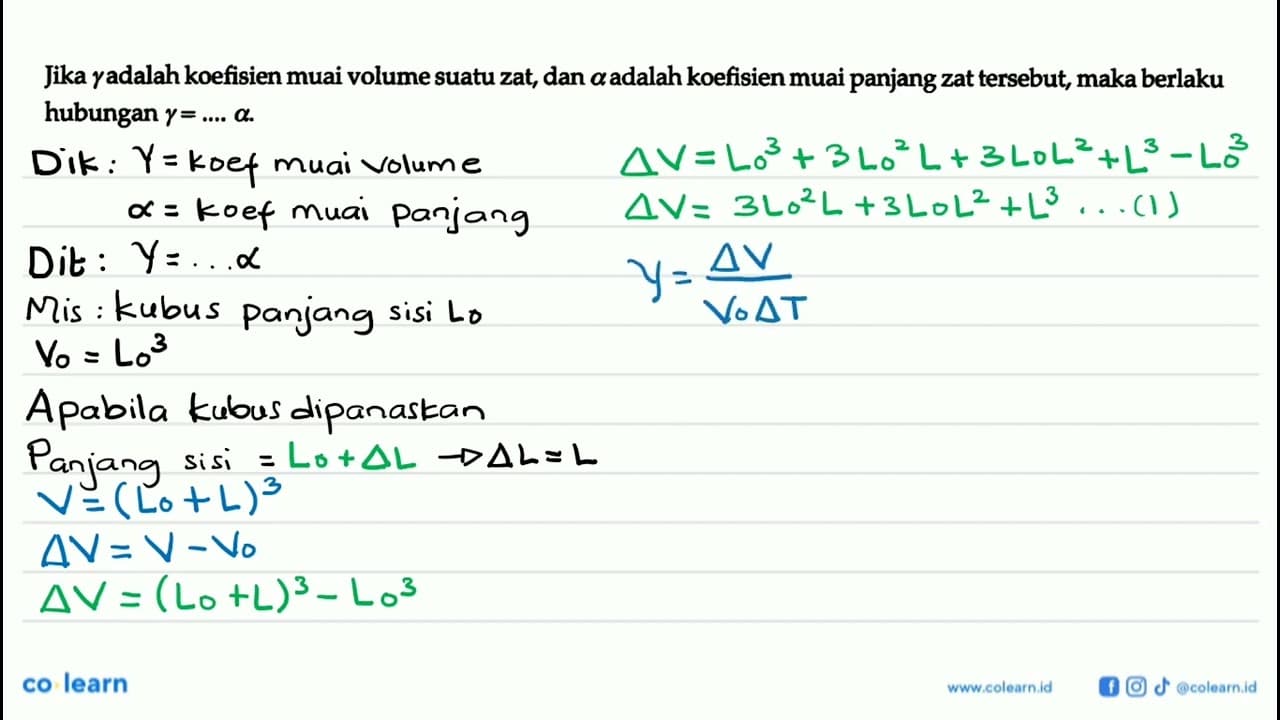 Jika γ adalah koefisien muai volume suatu zat, dan α adalah koefisien muai panjang zat tersebut, maka berlaku
hubungan γ = .... α.
Dik : γ = koef muai volume
α = koef muai panjang
Dit : γ = ...α
Mis : kubus panjang sisi Lo
Vo = Lo³
Apabila kubus dipanaskan
Panjang sisi = Lo + ΔL → ΔL = L
V = (Lo + L)³
ΔV = V - Vo
ΔV = (Lo + L)³ - Lo³
ΔV = Lo³ + 3Lo²L + 3LoL² + L³ - Lo³
ΔV = 3Lo²L + 3LoL² + L³ ...(1)
γ = ΔV
VoΔT
co learn
www.colearn.id
@colearn.id